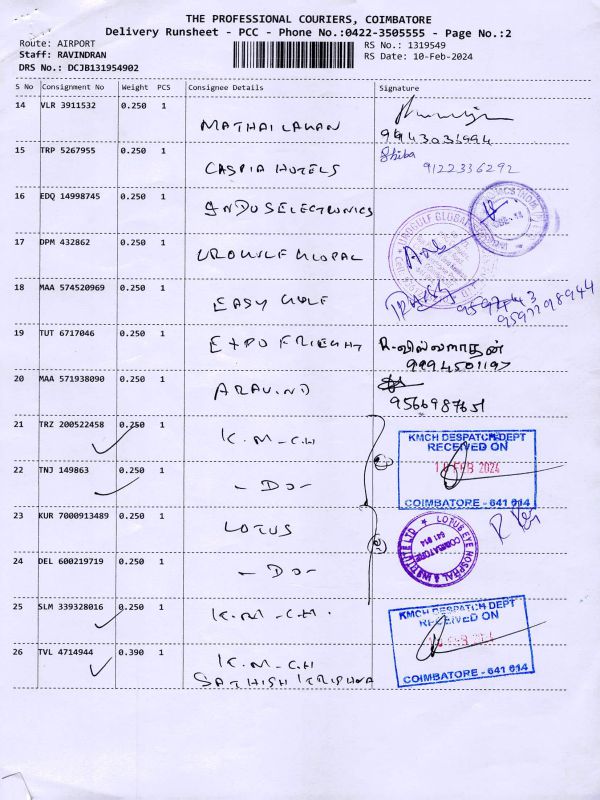 THE PROFESSIONAL COURIERS, COIMBATORE
Delivery Runsheet - PCC - Phone No.:0422-3505555 - Page No.:2
Route: AIRPORT
Staff: RAVINDRAN
DRS No.: DCJB131954902
RS No.: 1319549
RS Date: 10-Feb-2024
S No Consignment No Weight PCS Consignee Details Signature
14 VLR 3911532 0.250 1
MATHAILAKAN
15 TRP 5267955 0.250 1 Shiba
CASPIA HOTELS 9122336292
16 EDQ 14998745 0.250 1
INDUSELECTRONICS
17 DPM 432862 0.250 1
UROGULF GLOPAL
18 MAA 574520969 0.250 1
EASY GULF
9597798944
19 TUT 6717046 0.250 1
EXPO FRIEGHT
9994501197
20 MAA 571938090 0.250 1
ARAVIND
9566987651
21 TRZ 200522458 0.250 1
K.M-C.H
KMCH DESPATCH DEPT
RECEIVED ON
10 FEB 2024
COIMBATORE - 641 014
22 TNJ 149863 0.250 1
- DO -
23 KUR 7000913489 0.250 1
LOTUS
LOTUS EYE HOSPITAL & INSTITUTE LTD
COIMBATORE
641 014
24 DEL 600219719 0.250 1
- DO -
25 SLM 339328016 0.250 1
K.M-C.H.
KMCH DESPATCH DEPT
RECEIVED ON
10 FEB 2024
COIMBATORE - 641 014
26 TVL 4714944 0.390 1
K.M-C.H
SATHISH KRISHNA